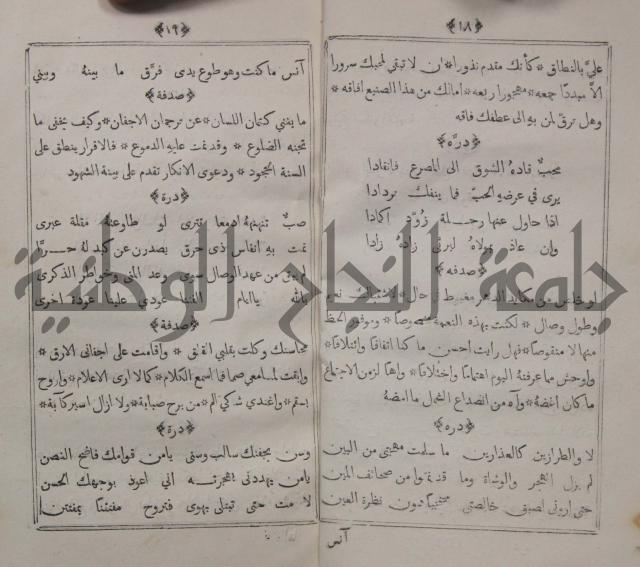 ﴿١٨﴾
عليّ بالنطاق * كأنك مقدم نذورا * ان لا تبقي لمحبك سرورا
الاّ مبددا جمعه * مهجورا ربعه * امالك من هذا الصنيع افاقه *
وهل ترقّ لمن به الى عطفك فاقه
﴿درّه﴾
محبٌ قاده الشوق الى المصرع فانقادا
يرى في عرضه الحبّ فما ينفك تردادا
اذا حاول عنها رحلة زُوّد اكمادا
وان عاذ بمولاه ليرثي زاده زادا
﴿صدفه﴾
من مكايد الدهر
وطول وصال * لكنت بهذه النعمة
منها لا منقوصا * فهل رايت احسن ما كنا اتفاقا وائتلافا *
واوحش مما عرفنا اليوم اهتماما واختلافا * واها لزمن الاجتماع
ما كان اغضّه * وآه من انصداع الشمل ما امضّه
﴿دره﴾
لا والطرازين كالعذارين ما سلمت مهجتي من البين
لم يزل الهجر والوشاة وما قد تمّوا من صحائف المين
حتى اروني لصيق خالصتي محتجبا دون نظرة العين
آنس
﴿١٩﴾
آنس ما كنت وهو طوع يدى فرّق ما بينه وبيني
﴿صدفة﴾
ما يغني كتمان اللسان * عن ترجمان الاجفان * وكيف يخفى ما
تجنه الضلوع * وقد نمت عليه الدموع * فالاقرار ينطق على
السنة الجحود * ودعوى الانكار تقدم على بينة الشهود
﴿درة﴾
صبٌ تنهنهه ادمعا وتترى لو طاوعته مقلة عبرى
نمت به انفاس ذى حرق يصدرن عن كبد له حرّا
لم يبق من عهد الوصال سوى وعد المنى وخواطر الذكرى
بالله يا ايام الفتنا عودي علينا عودة اخرى
﴿صدفة﴾
محاسنك وكلت بقلبي القلق * واقامت على اجفاني الارق *
وابقت لمسامعي صما فما اسمع الكلام * كما لا ارى الاعلام * واروح
بسقم * واغتدي شكي الم * من برح صبابة * ولا ازال اسير كآبة *
﴿درة﴾
وسن بجفنك سالب وسني يا من قوامك فاضح الغصن
يا من يهددني بهجرته اني اعوذ بوجهك الحسن
لا مت حتى تبتلى بهوى فتروح مفتتنا بمفتتن
جامعة النجاح الوطنية